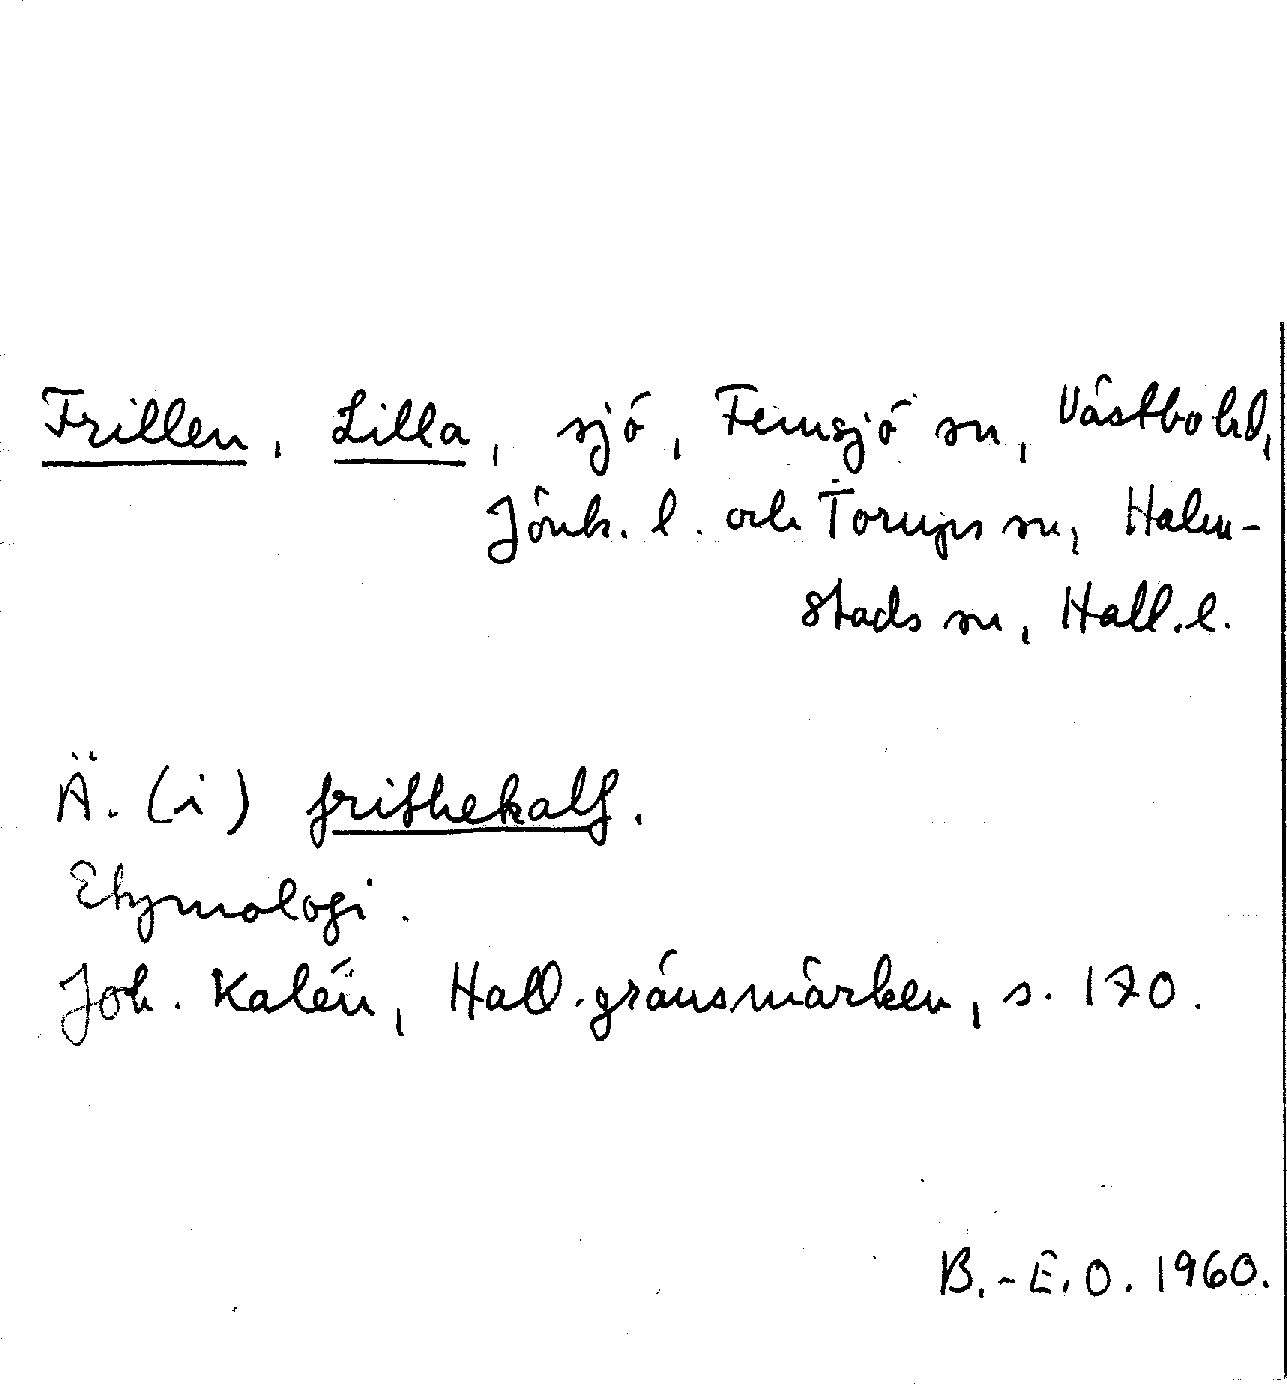 Frillen, Lilla, sjö, Femsjö sn, Västbo hd,
Jönk. l. och Torups sn, Halm-
stads sn, Hall.l.
Ä. (i) frithekalf.
Etymologi.
Joh. Kalén, Hall.gränsmärken, s. 170.
B.-E.O. 1960.